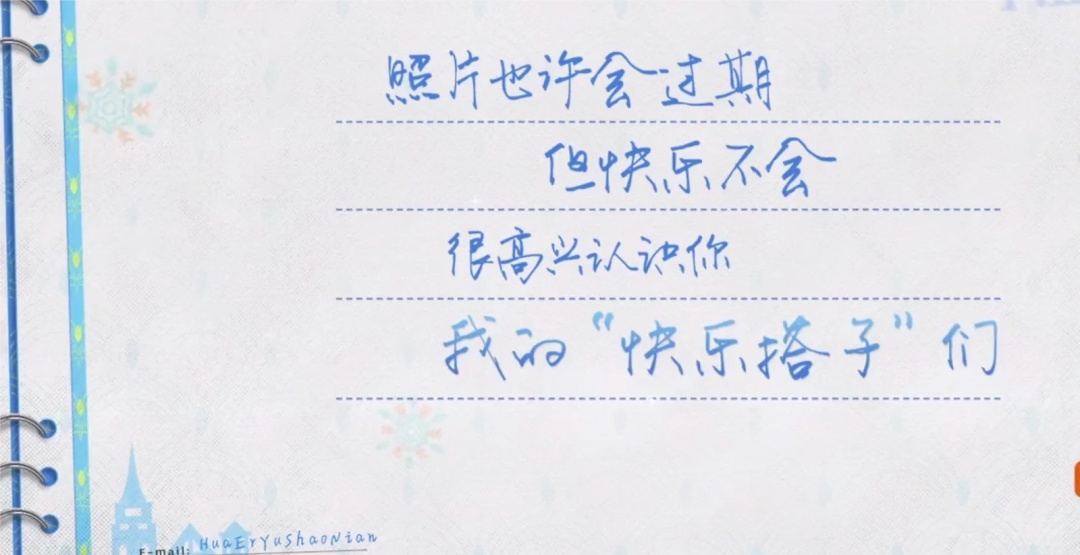 照片也许会过期
但快乐不会
很高兴认识你
我的“快乐搭子”们
E-mail: HuaErYuShaoNian